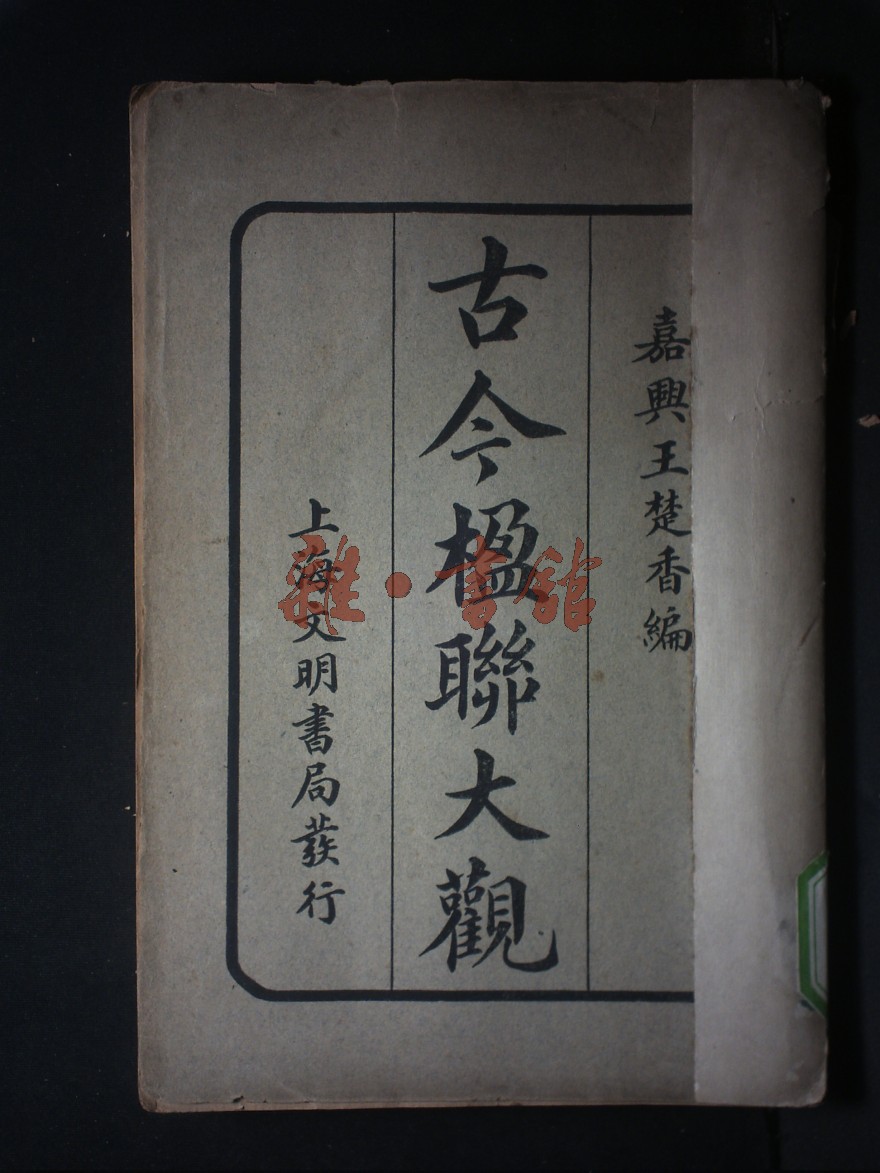 嘉興王楚香編
古今楹聯大觀
上海文明書局發行
雜·書館